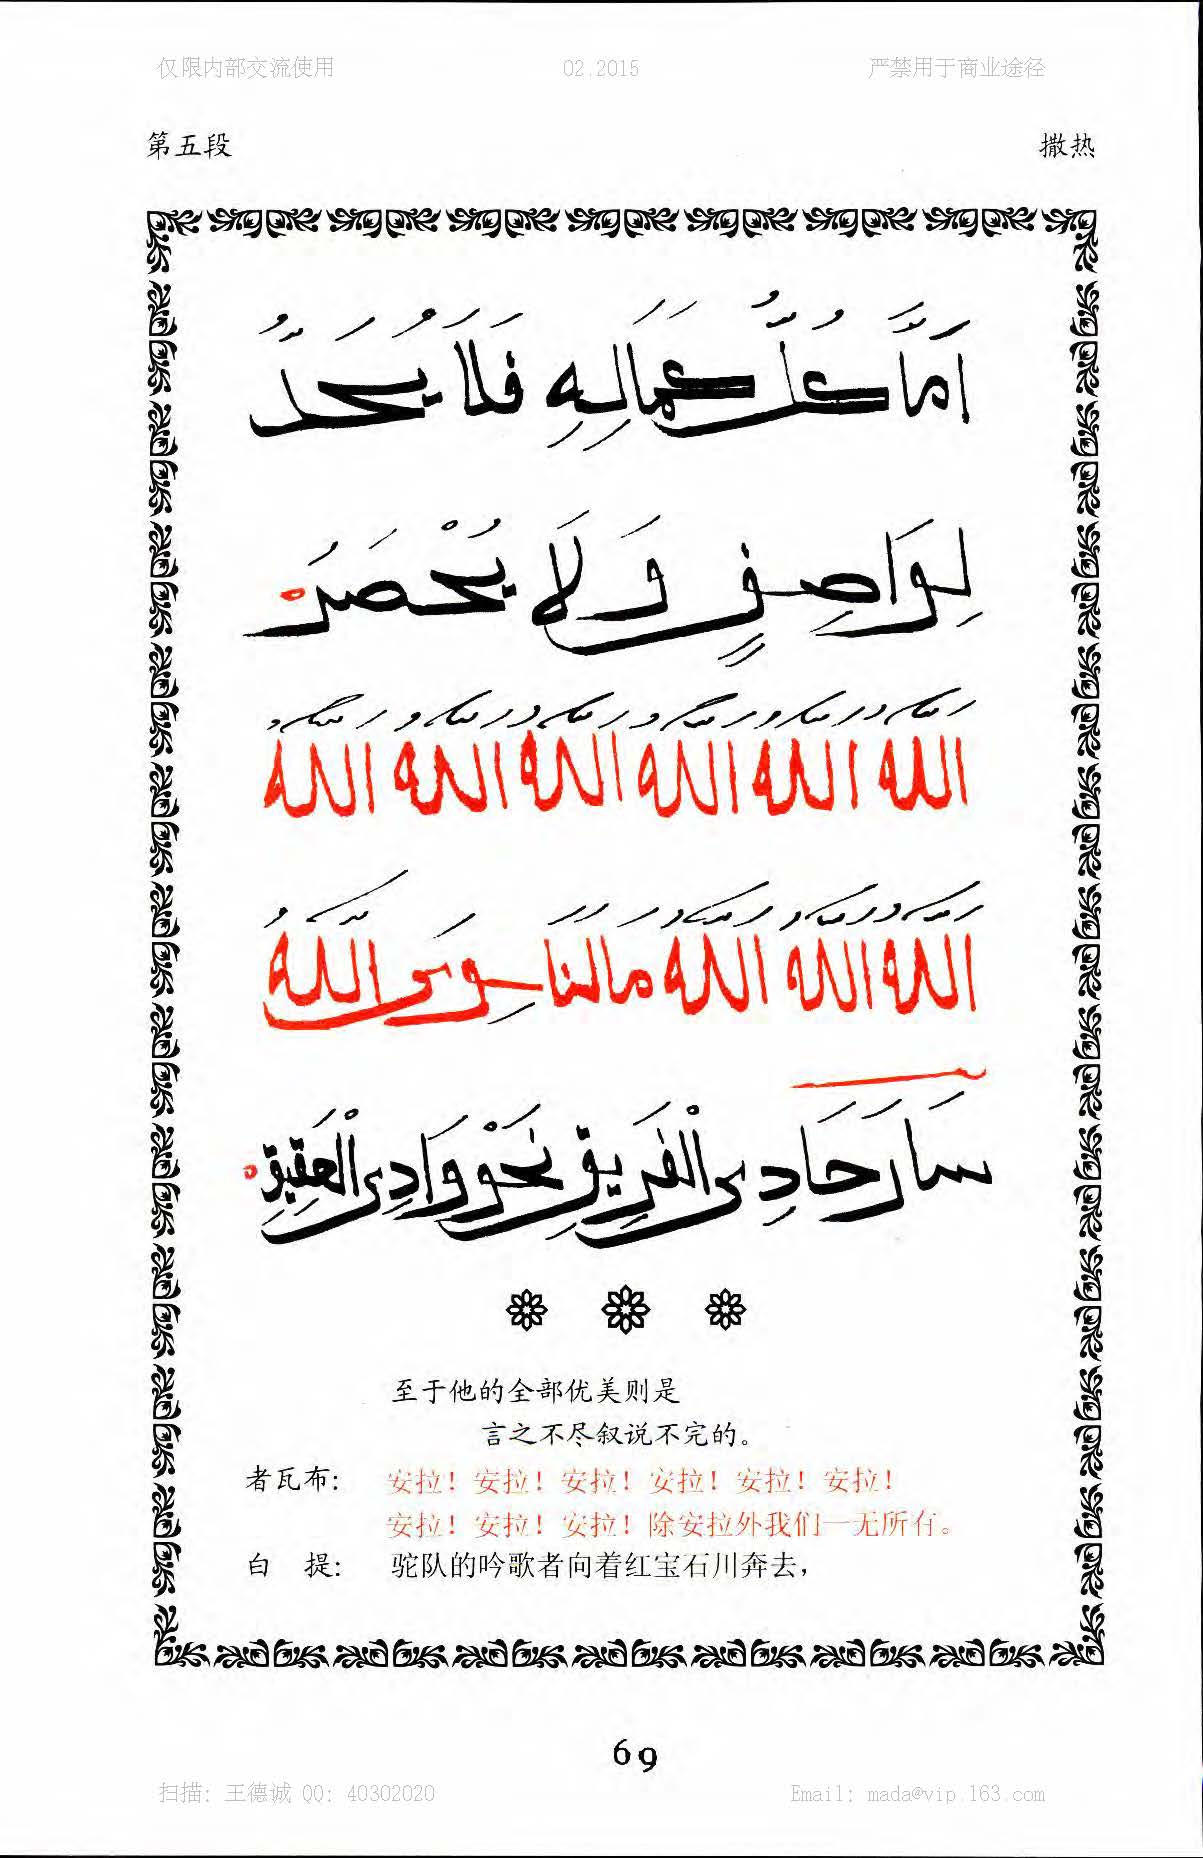 仅限内部交流使用 02.2015 严禁用于商业途径
第五段 撒热
اَمَّا كُلُّ كَمَالِهِ فَلَا يُحَدُّ
لِوَاصِفٍ وَلَا يُحْصَرُ
اَللهُ اَللهُ اَللهُ اَللهُ اَللهُ اَللهُ
اَللهُ اَللهُ اَللهُ مَالَنَا سِوَى اللهُ
سَارَ حَادِى الْفَرِيقِ نَحْوَ وَادِى الْعَقِيقِ
至于他的全部优美则是
言之不尽叙说不完的。
者瓦布: 安拉！安拉！安拉！安拉！安拉！安拉！
安拉！安拉！安拉！除安拉外我们一无所有。
白 提: 驼队的吟歌者向着红宝石川奔去，
69
扫描: 王德诚 QQ: 40302020 Email: mada@vip.163.com